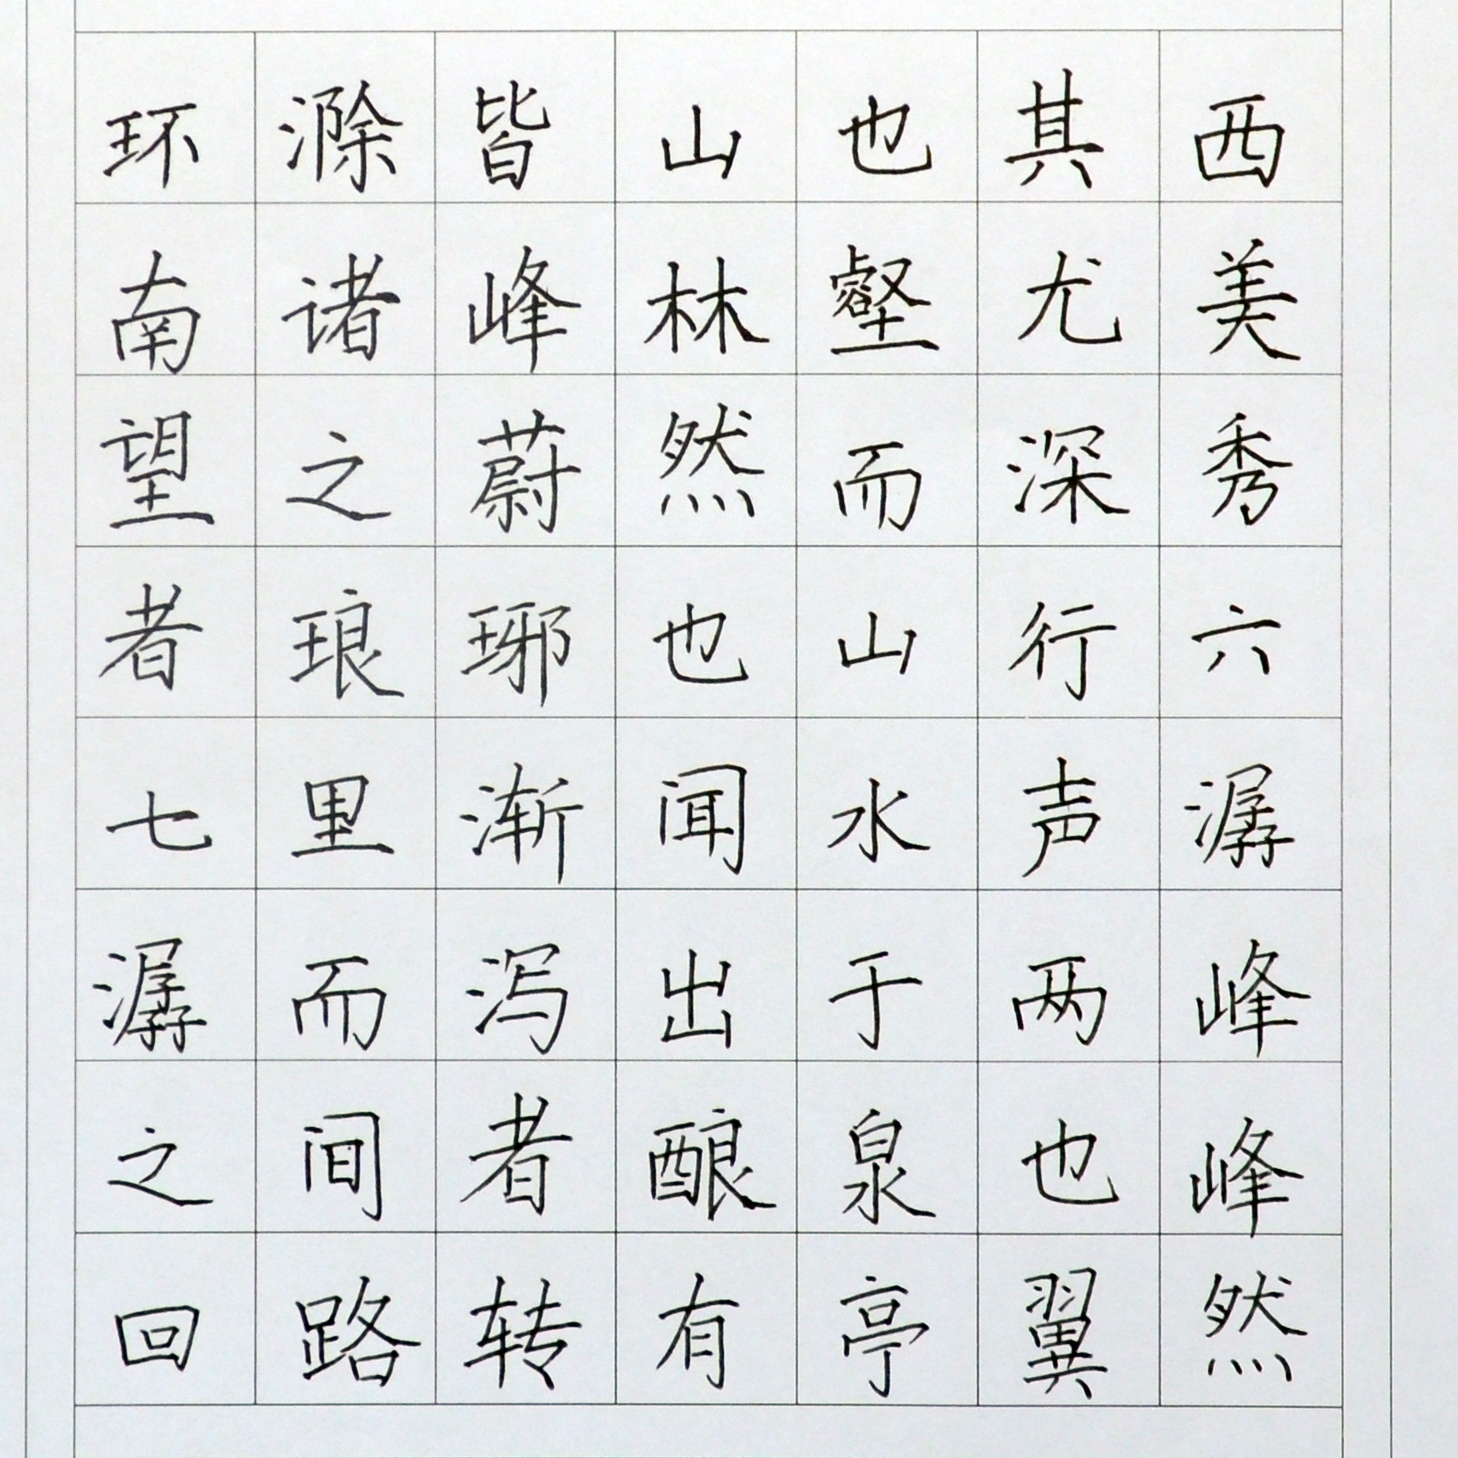 环滁皆山也其西
南诸峰林壑尤美
望之蔚然而深秀
者琅琊也山行六
七里渐闻水声潺
潺而泻出于两峰
之间者酿泉也峰
回路转有亭翼然